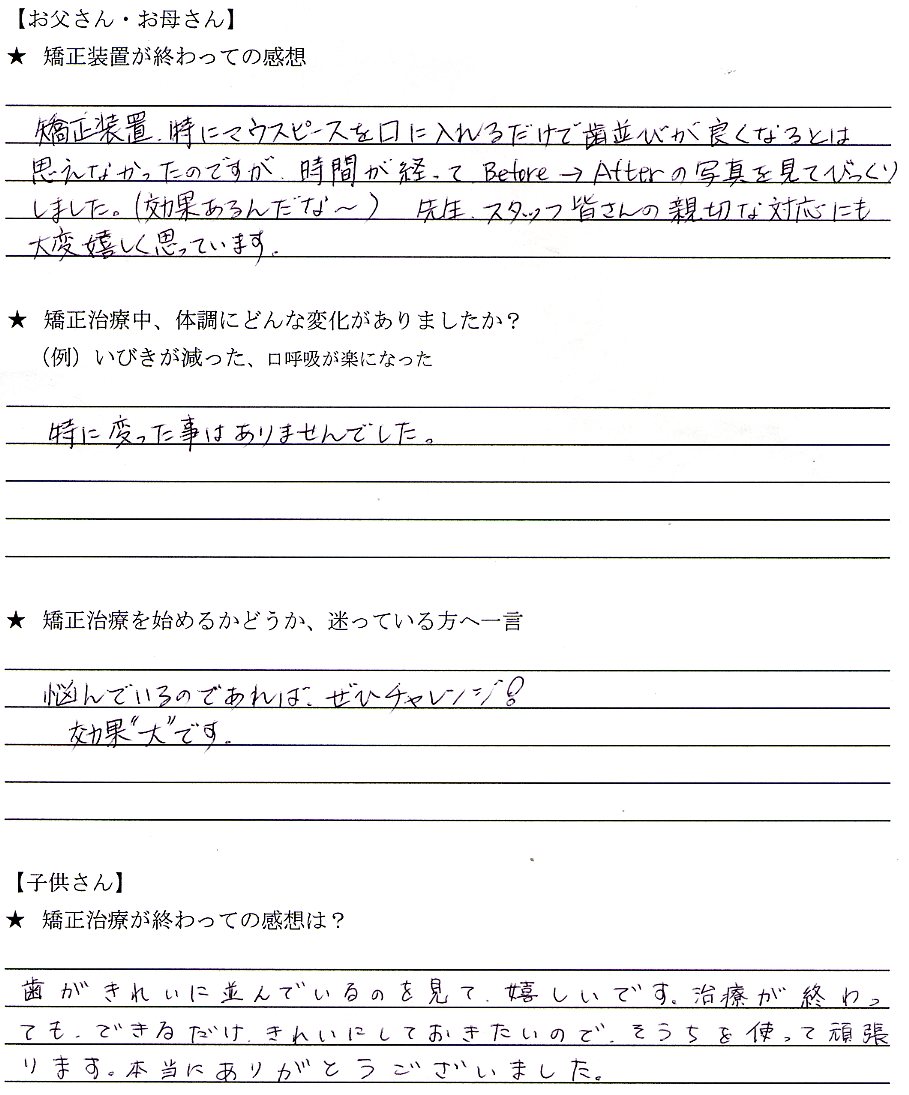 【お父さん・お母さん】
★ 矯正装置が終わっての感想
矯正装置、特にマウスピースを口に入れるだけで歯並びが良くなるとは
思えなかったのですが、時間が経って Before → Afterの写真を見てびっくり
しました。(効果あるんだな～) 先生、スタッフ皆さんの親切な対応にも
大変嬉しく思っています。
★ 矯正治療中、体調にどんな変化がありましたか？
（例）いびきが減った、口呼吸が楽になった
特に変った事はありませんでした。
★ 矯正治療を始めるかどうか、迷っている方へ一言
悩んでいるのであれば、ぜひチャレンジ！
効果“大”です。
【子供さん】
★ 矯正治療が終わっての感想は？
歯がきれいに並んでいるのを見て、嬉しいです。治療が終わっ
ても、できるだけ、きれいにしておきたいので、そうちを使って頑張
ります。本当にありがとうございました。